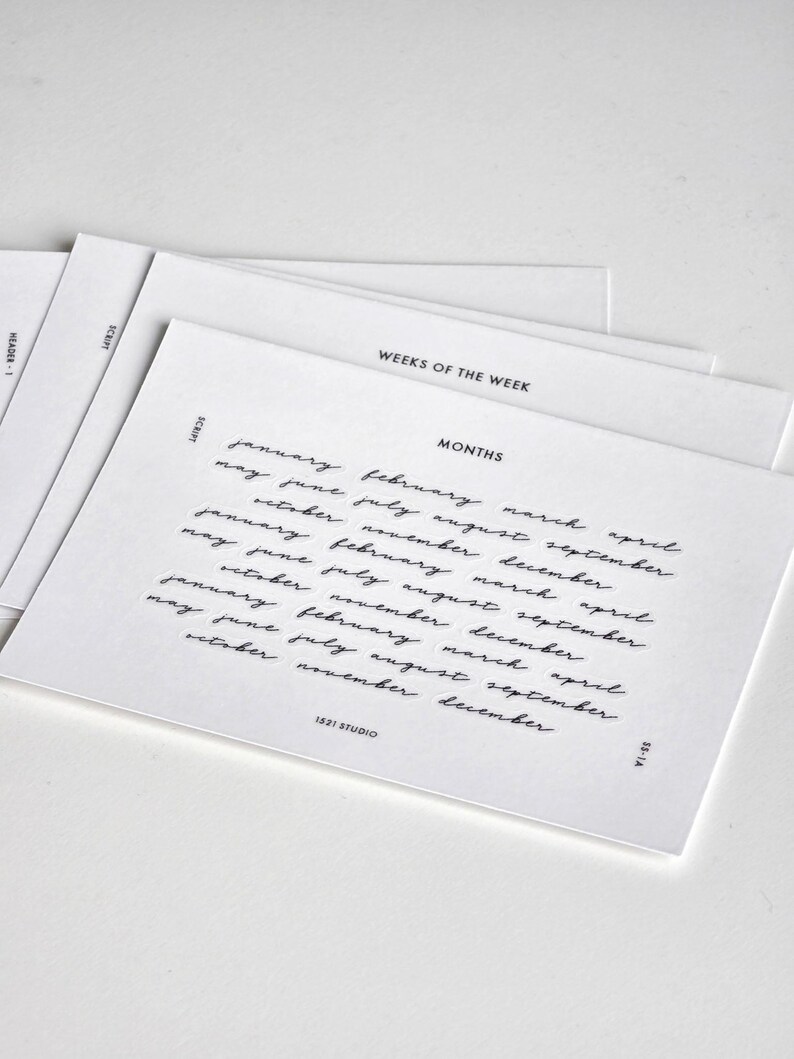 HEADER - 1
SCRIPT
WEEKS OF THE WEEK
MONTHS
SCRIPT
january february march april
may june july august september
october november december
january february march april
may june july august september
october november december
january february march april
may june july august september
october november december
1521 STUDIO
SS-1A